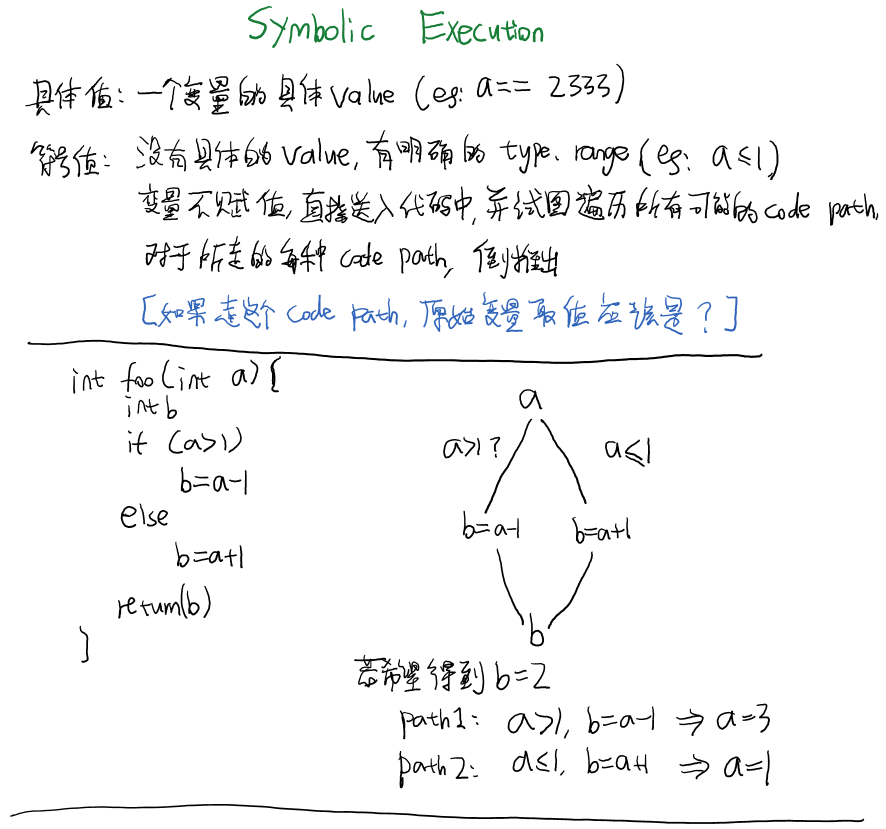 Symbolic Execution
具体值: 一个变量的具体value (eg: a== 2333)
符号值: 没有具体的value, 有明确的 type、range (eg: a≤1)
变量不赋值, 直接送入代码中, 并试图遍历所有可能的code path,
对于所走的每种 code path, 倒推出
[如果走这个 code path, 原始变量取值应该是?]
int foo(int a){
int b
if (a>1)
b=a-1
else
b=a+1
return(b)
}
a
a>1?
a≤1
b=a-1
b=a+1
b
若希望得到 b=2
path1: a>1, b=a-1 ⇒ a=3
path2: a≤1, b=a+1 ⇒ a=1